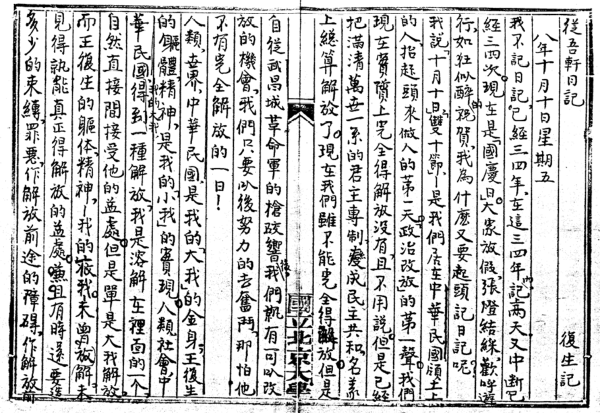 從吾軒日記
八年十月十日星期五 復生記
我不記日記,已經三四年,在這三四年內,記兩天又中斷,已
經三四次.現在是「國慶日」大家放假,張燈結綵,歡呼遊
行,如狂似醉的祝賀,我為什麼又要起頭記日記呢?
我說「十月十日」雙十節—是我們居在中華民國領土上
的人抬起頭來做人的第一天,政治改放的第一聲.我們
現在實質上完全得解放沒有,且不用說.但是已經
把滿清萬世一系的君主專制,變成民主共和,名義
上總算解放了.現在我們雖不能完全得解放,但是
國立北京大學
自從武昌城革命軍的槍砲響後,我們就有可以改
放的機會,我們只要以後努力的去奮鬥,那怕他
不有完全解放的一日!
人類,世界,中華民國,是我的「大我」的金身,王復生
的軀體精神,是我的「小我」的實現.人類社會,中
華民國得到一種解放,我的大我我是溶解在裡面的一个,
自然直接間接受他的益處.但是單是大我解放,
而王復生的軀体精神—我的小我—未曾放解,未
見得孰能真正得解放的益處.兼且有時還要造
多少的束縛,罪惡,作解放前途的障碍,作解放前